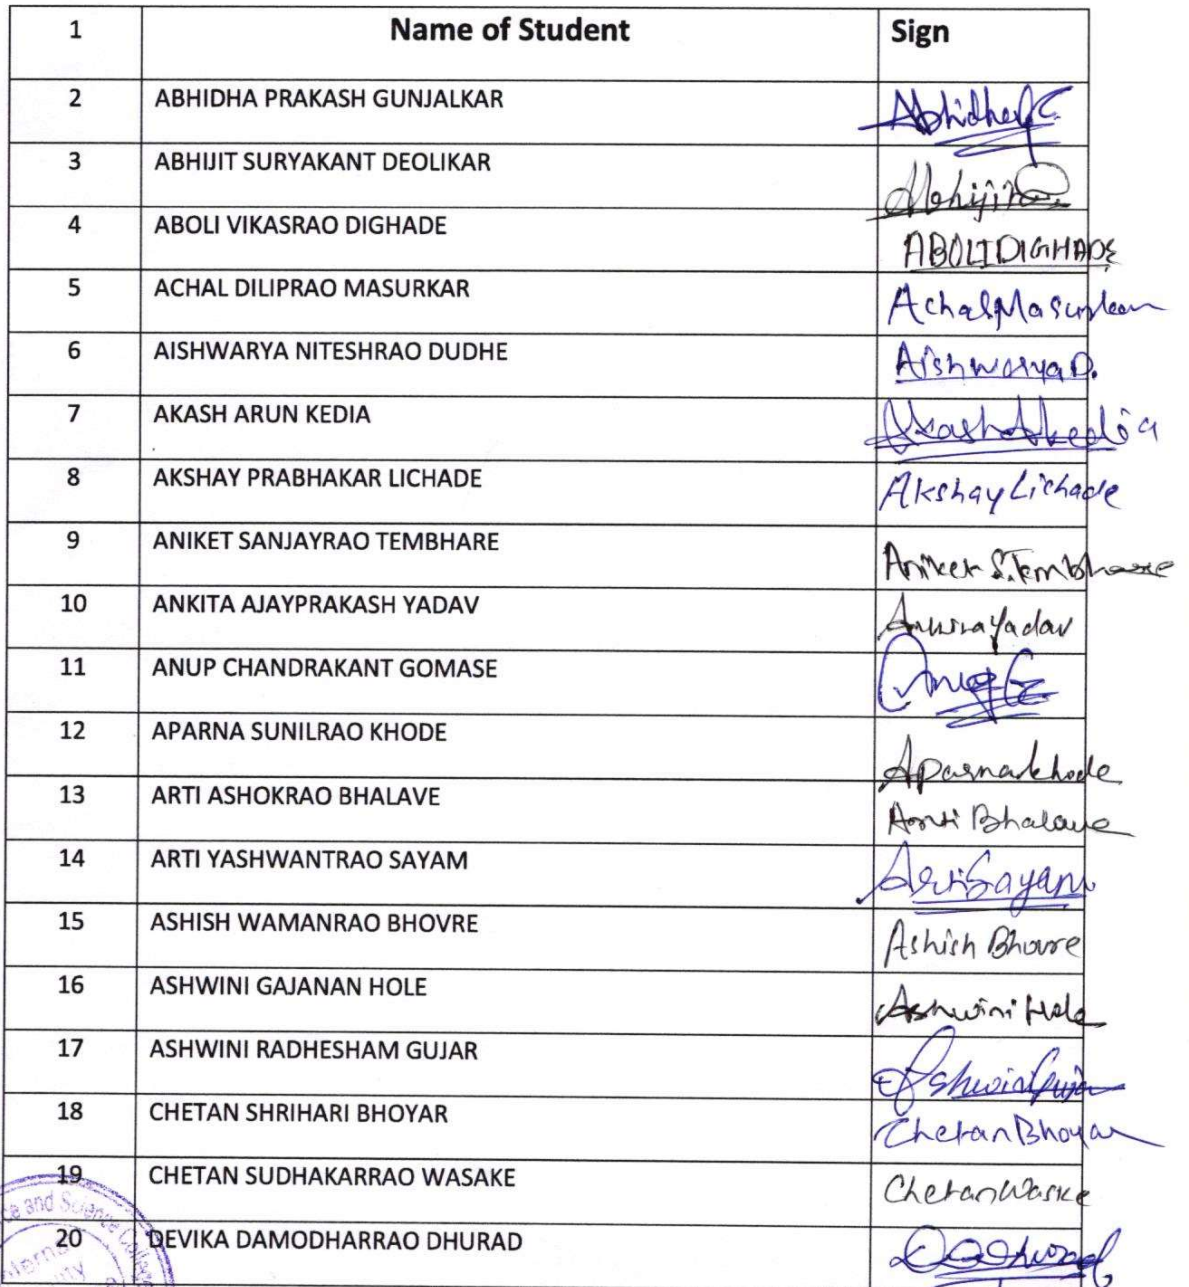 1 Name of Student Sign
2 ABHIDHA PRAKASH GUNJALKAR
3 ABHIJIT SURYAKANT DEOLIKAR Abhijit
4 ABOLI VIKASRAO DIGHADE ABOLI DIGHADE
5 ACHAL DILIPRAO MASURKAR Achal Masurkar
6 AISHWARYA NITESHRAO DUDHE Aishwarya D.
7 AKASH ARUN KEDIA Akash A kedia
8 AKSHAY PRABHAKAR LICHADE Akshay Lichade
9 ANIKET SANJAYRAO TEMBHARE Aniket S. Tembhare
10 ANKITA AJAYPRAKASH YADAV Yadav
11 ANUP CHANDRAKANT GOMASE Anup G
12 APARNA SUNILRAO KHODE Aparna khode
13 ARTI ASHOKRAO BHALAVE Arti Bhalave
14 ARTI YASHWANTRAO SAYAM Arti Sayam
15 ASHISH WAMANRAO BHOVRE Ashish Bhovre
16 ASHWINI GAJANAN HOLE Ashwini Hole
17 ASHWINI RADHESHAM GUJAR Ashwini Gujar
18 CHETAN SHRIHARI BHOYAR Chetan Bhoyar
19 CHETAN SUDHAKARRAO WASAKE Chetan Waske
20 DEVIKA DAMODHARRAO DHURAD
and Science